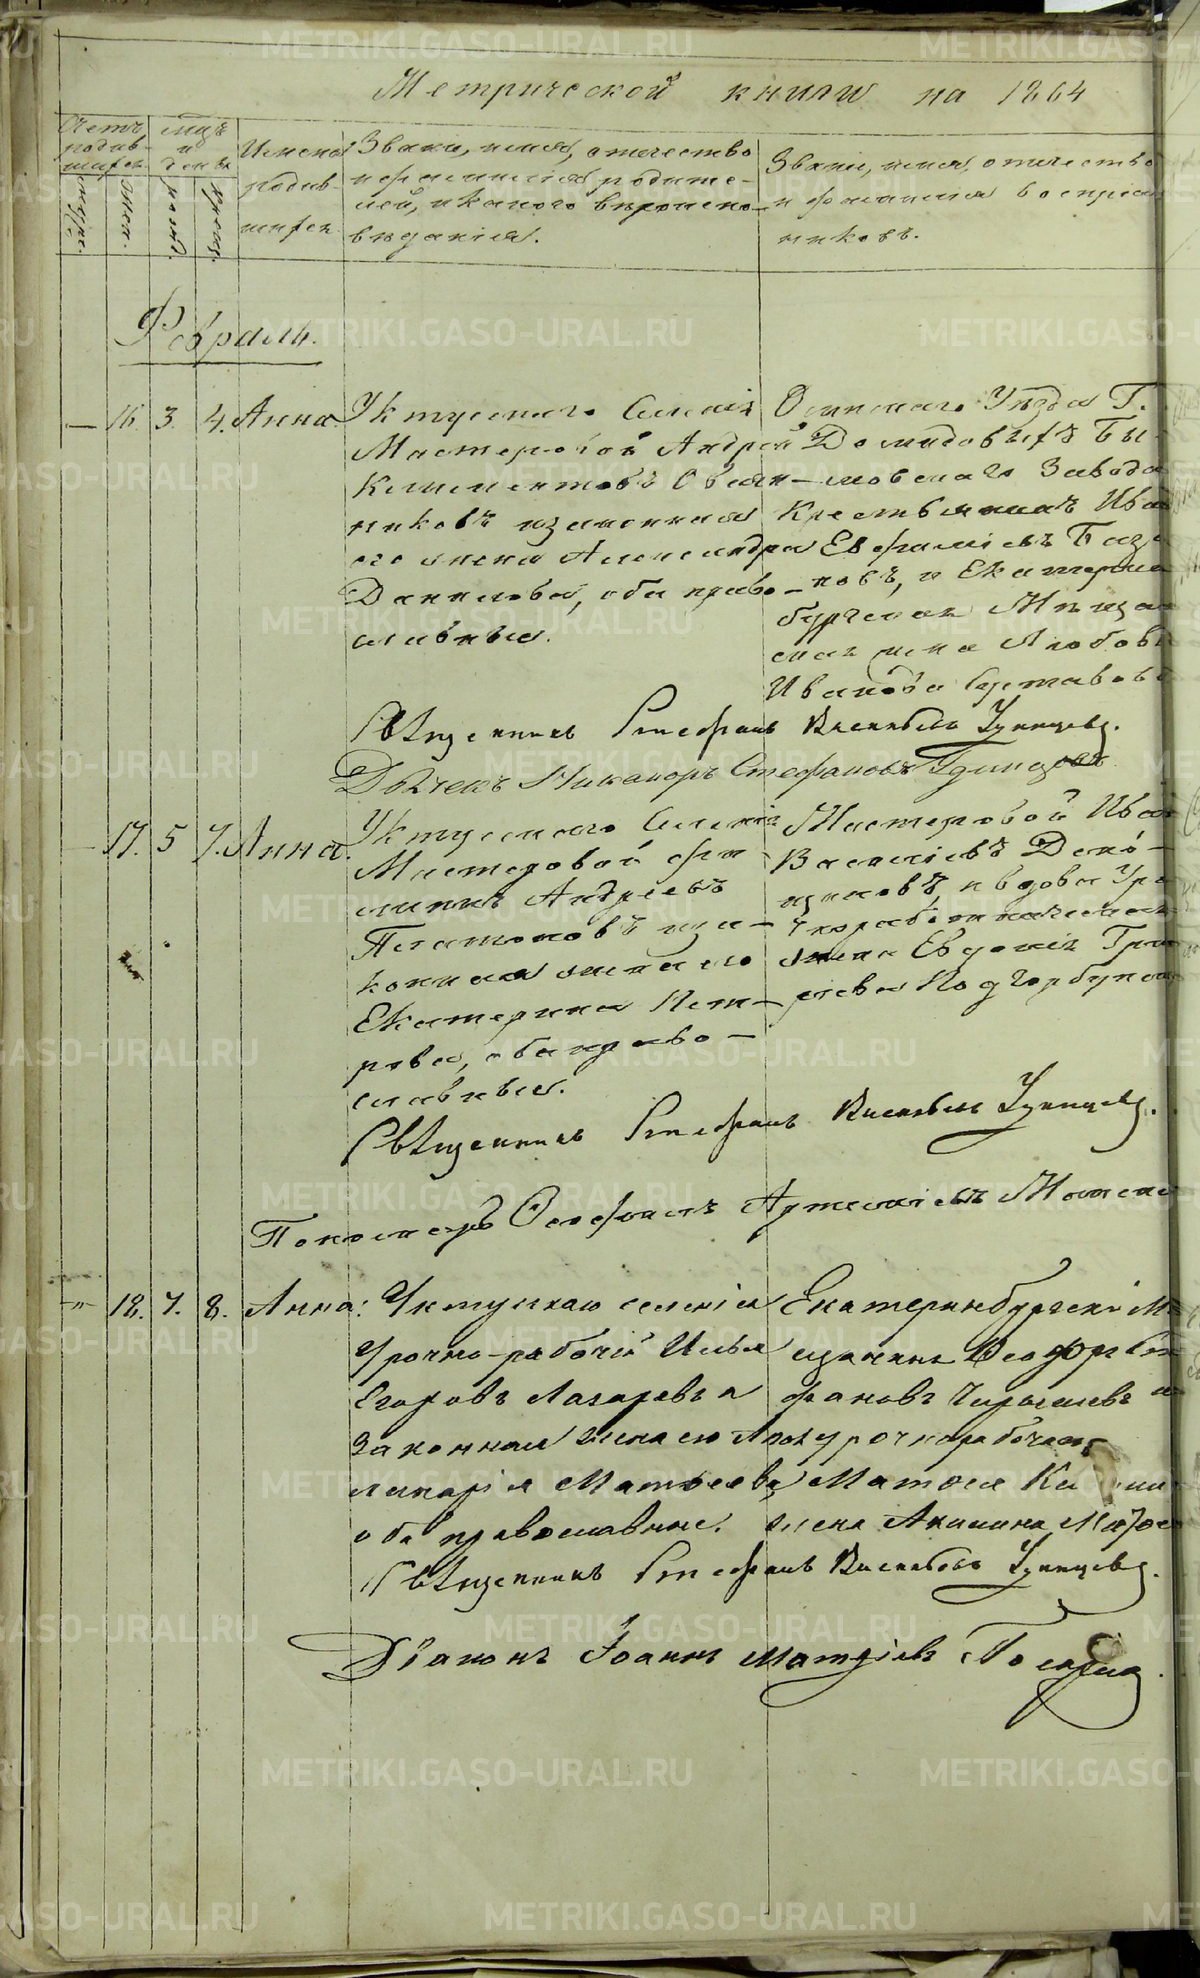 Метрической книги на 1864
Счетъ родив-шихся
муж.
жен.
Мѣсяц и день
рожд.
крещ.
Имена родив-шихся
Званіе, имя, отчество
и фамилія родите-
лей, и какого вѣроиспо-
вѣданія.
Званіе, имя, отчество
и фамилія воспріем
никовъ.
Февраль.
— 16. 3. 4. Анна
Уктусскаго Селенія
Мастеровой Андрей
Климентовъ Овчин-
никовъ и законная
его жена Александра
Данилова, оба право-
славныя.
Осинскаго Уѣзда Г.
Демидовыхъ Бы-
мовскаго Завода
Крестьянинъ Иван
Евфиміевъ
новъ, и Екатерин
бургская Мѣщан
ская жена Любовь
Иванова
Священникъ Стефанъ Васильевъ Удинцевъ.
Дьячекъ Никаноръ Стефановъ
— 17. 5. 7. Анна.
Уктусскаго Селенія
Мастеровой Фи-
липпъ Андреевъ
Платоновъ и за-
конная жена его
Екатерина Пет-
рова, оба право-
славныя.
Мастеровой Иван
Васильевъ
щиковъ, и вдова Уро
чнорабочаго
жена Евдокія Григ
орьева Подгорбунск
Священникъ Стефанъ Васильевъ Удинцевъ.
Пономарь Феофанъ Артеміевъ
—"— 18. 7. 8. Анна:
Уктускаго селенія
Урочно-рабочій Илья
Егоровъ Лазаревъ и
законная жена его Апол
линарія Матвеева
оба православные.
Екатеринбургскій М
щанинъ Феодоръ Ст
фановъ Чирьевъ и
урочнорабочаго
Матвея
жена Акилина
Священникъ Стефанъ Васильевъ Удинцевъ.
Діаконъ Іоаннъ Матѳіевъ
METRIKI.GASO-URAL.RU